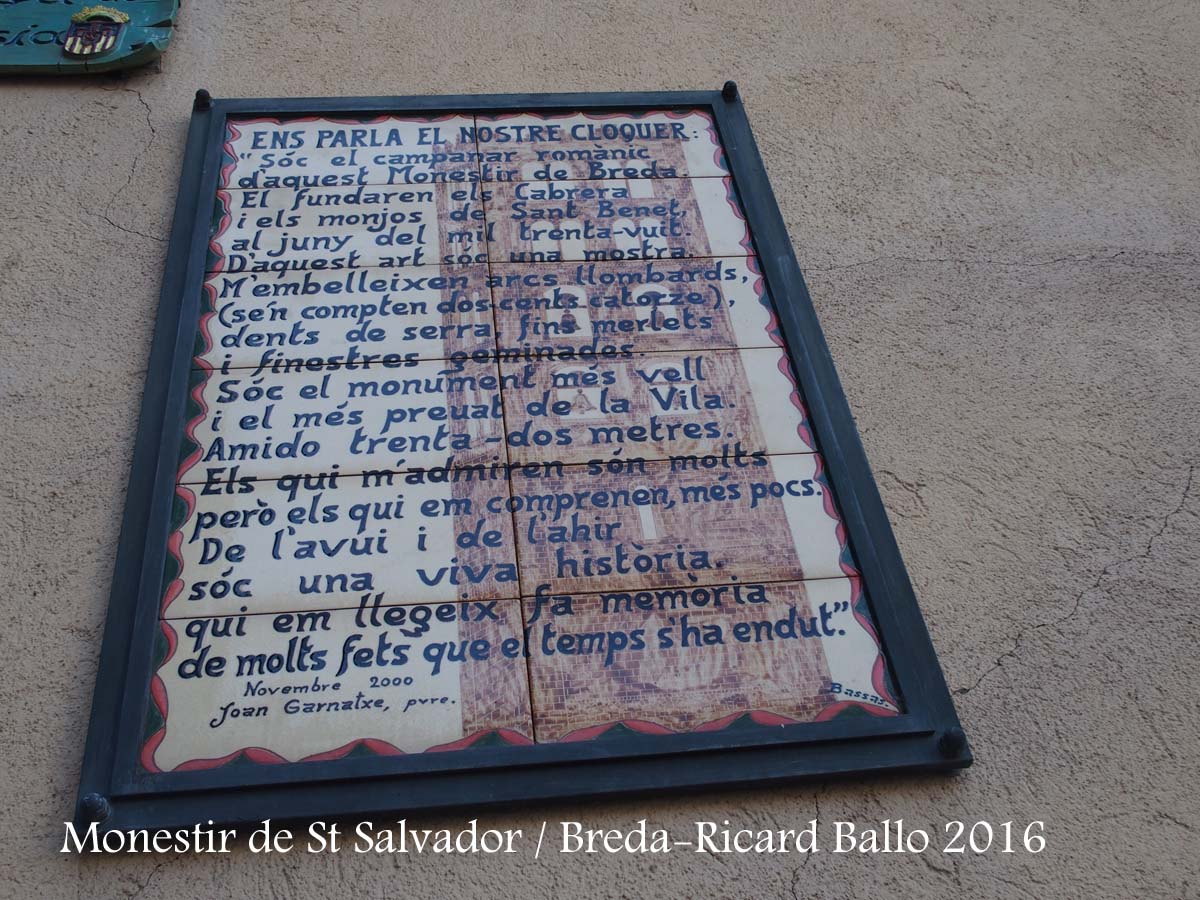 ENS PARLA EL NOSTRE CLOQUER:
"Sóc el campanar romànic
d'aquest Monestir de Breda.
El fundaren els Cabrera
i els monjos de Sant Benet,
al juny del mil trenta-vuit.
D'aquest art sóc una mostra.
M'embelleixen arcs llombards,
(se'n compten dos-cents catorze),
dents de serra, fins merlets
i finestres geminades.
Sóc el monument més vell
i el més preuat de la Vila.
Amido trenta-dos metres.
Els qui m'admiren són molts
però els qui em comprenen, més pocs.
De l'avui i de l'ahir
sóc una viva història.
qui em llegeix fa memòria
de molts fets que el temps s'ha endut."
Novembre 2000
Joan Garnatxe, pvre.
Bassas.
Monestir de St Salvador / Breda-Ricard Ballo 2016